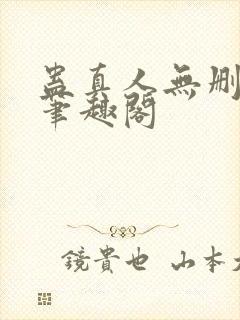 蛊真人無删
筆趣閣
鏡貴也 山本